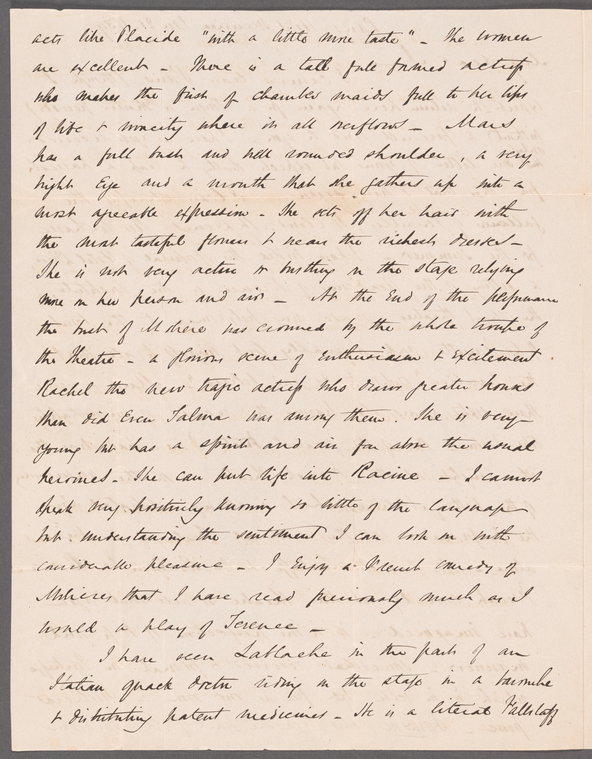 acts like Placide "with a little more taste" - The women
are excellent - There is a tall full formed actress
who makes the first of chamber maids full to her lips
of life & vivacity where in all overflows - Mars
has a full bust and well rounded shoulder, a very
bright Eye and a mouth that she gathers up into a
most agreeable expression - She sets off her hair with
the most tasteful flowers & wears the richest dresses -
She is not very active or bustling on the stage relying
more on her person and airs - At the End of the performance
the bust of Moliere was crowned by the whole troupe of
the Theatre - a glorious scene of Enthusiasm & Excitement
Rachel the new tragic actress who draws greater houses
than did Even Talma was among them. She is very
young but has a spirit and air far above the usual
heroines - She can put life into Racine - I cannot
speak very positively knowing so little of the language
but understanding the sentiment I can look on with
considerable pleasure - I Enjoy a French comedy of
Molieres that I have read previously much as I
would a play of Terence -
I have seen Lablache in the part of an
Italian quack doctor riding on the stage in a barouche
& distributing patent medicines - He is a literal Falstaff